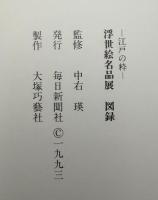 ―江戸の粋―
浮世絵名品展 図録
監修 中右 瑛
発行 毎日新聞社 ©一九九三
製作 大塚巧藝社